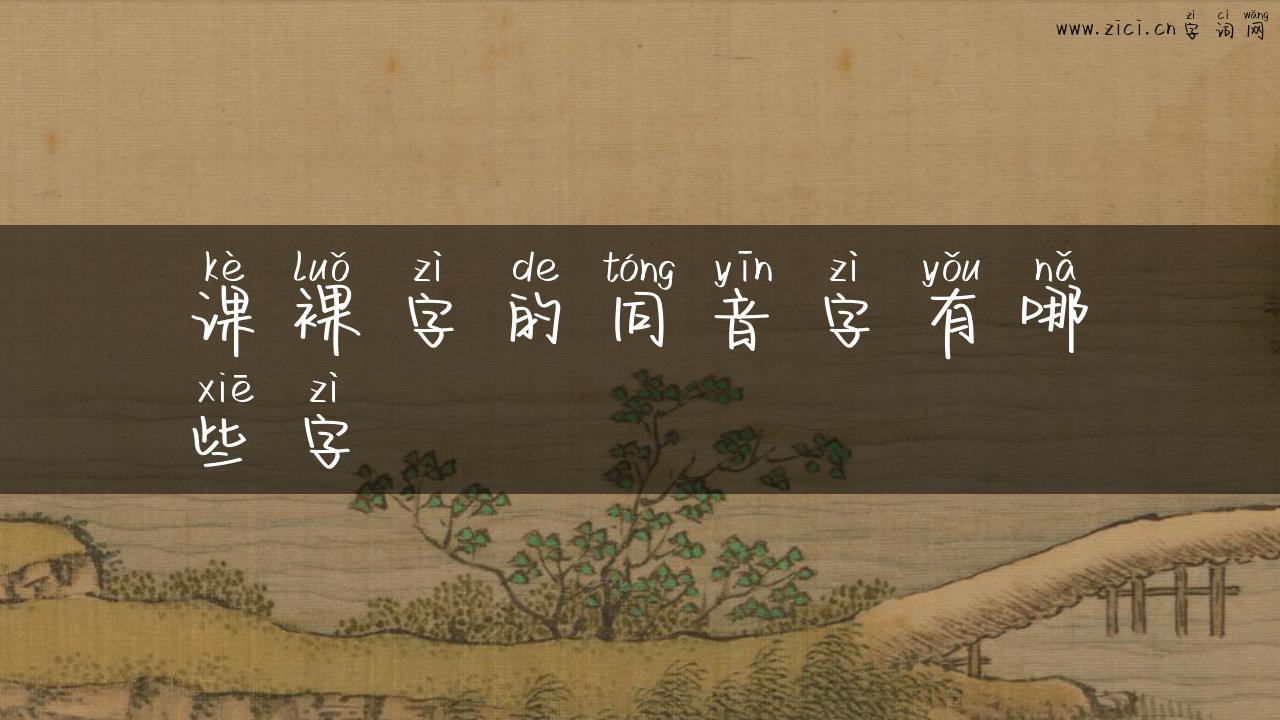 zì cí wǎng
www.zici.cn 字词网
kè luǒ zì de tóng yīn zì yǒu nǎ
课裸字的同音字有哪
xiē zì
些字